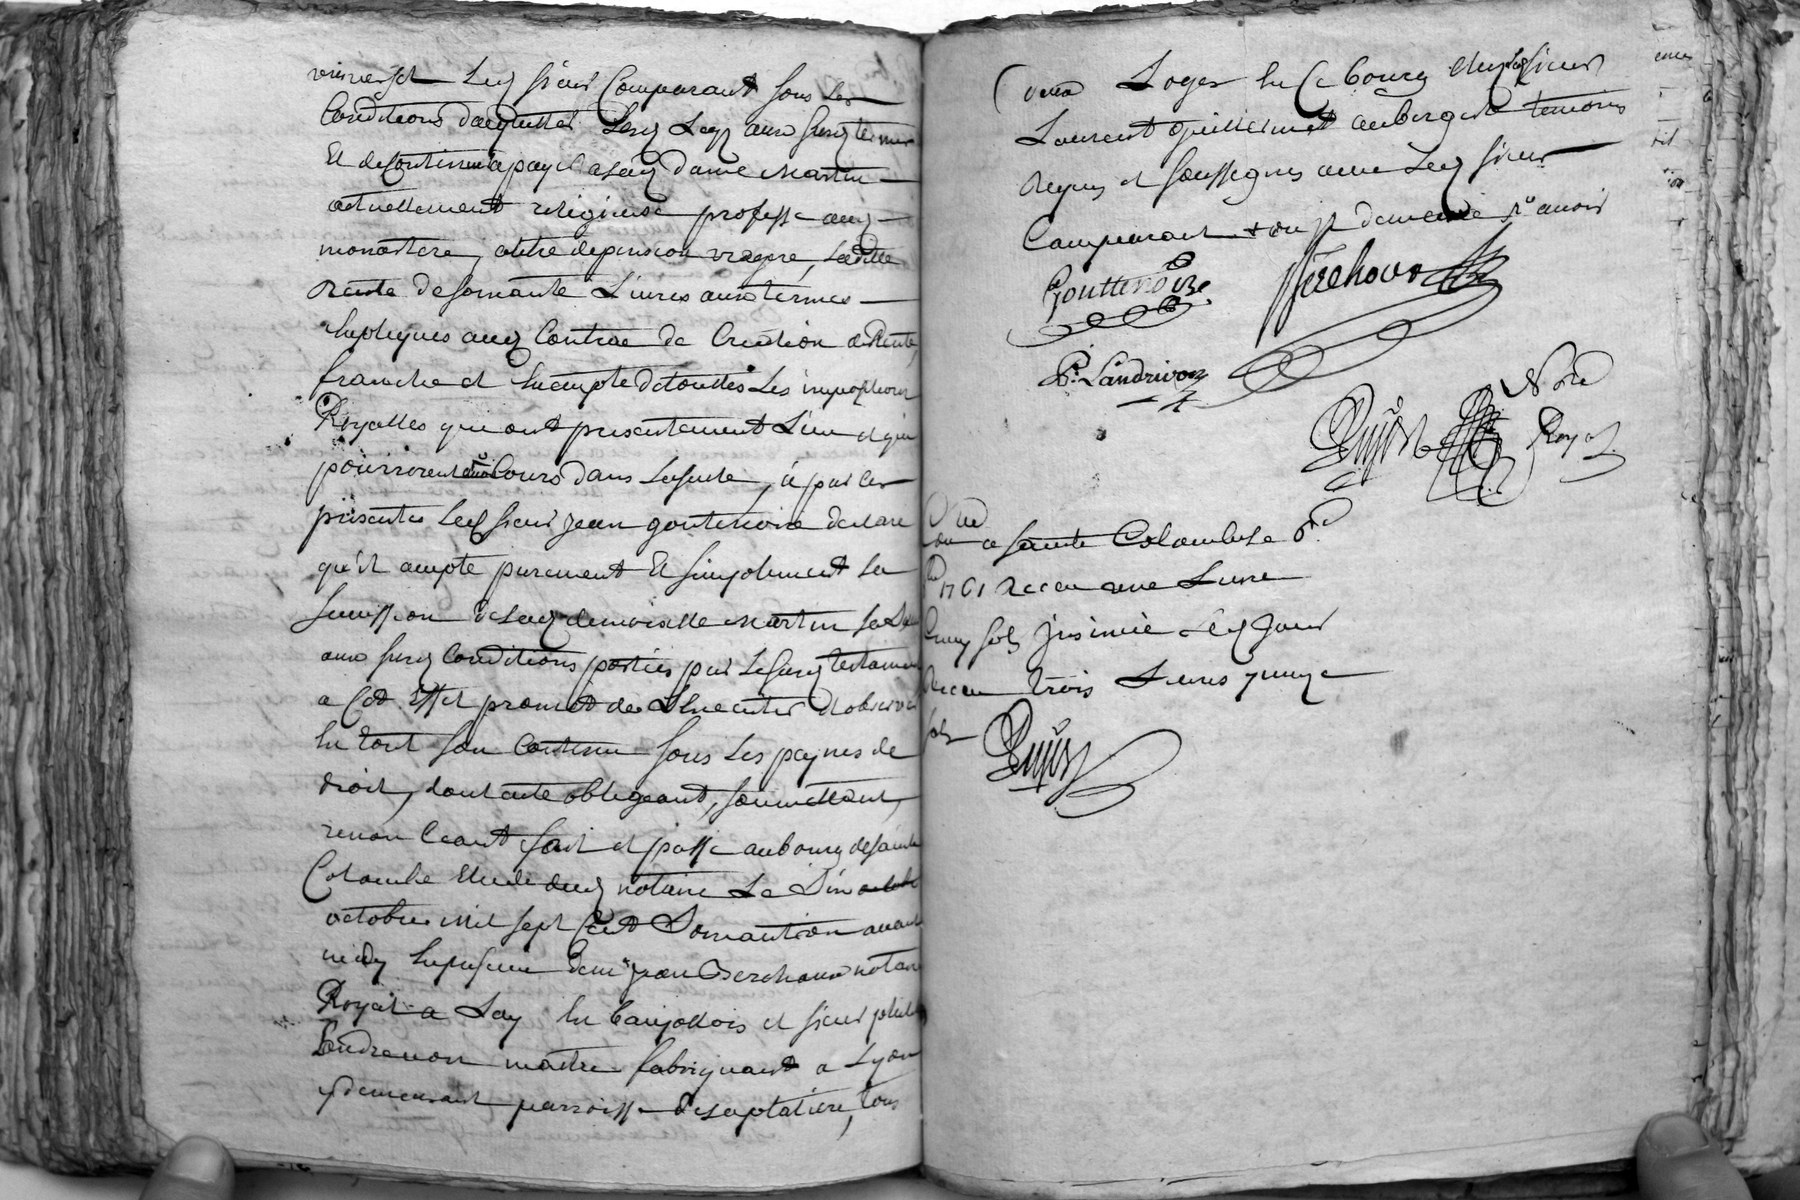 Led sieur Comparant sous les
Conditions d'acquitter led Legs aux susd termes
Et de continuer a payer a lad dame Martin
actuellement religieuse professe aud
monastere, a titre de pension viagere, Ladite
Rente de soixante Livres aux termes
aud Contrat de Creation de Rente,
franche et Exempte de touttes Les impositions
Royalles qui ont presentement Lieu et qui
pourroient avoir Cours dans La suite, et par Ces
presentes led sieur jean goutenoire declare
qu'il accepte purement Et simplement La
de lad demoiselle Martin
aux susd Conditions portées par Le susd testament
a Cet Effet promet de L'Executer et observer
En tout son Contenu sous Les peynes de
droit, dont acte obligeant, soumettant,
renonceant fait et passé au bourg de sainte
Colombe Etude dud notaire Le
octobre mil sept Cent soixante un avant
midy En presence de me jean Berchoux notaire
Royal a Lay En Baujollois et sieur
Landrevon maitre fabriquant a Lyon
y demeurant parroisse de la platiere, tous
Loges En Ce bourg chez sieur
Laurent Guillermet aubergiste temoins
Requis et soussignés avec Led sieur
Comparant
Gouttenoire Berchoux
P. Landrivon
Pujos Nore
Royal
a sainte Colombe Le
1761 Receu une Livre
sols jnsinué Led jour
Receu trois Livres
sols Pujos